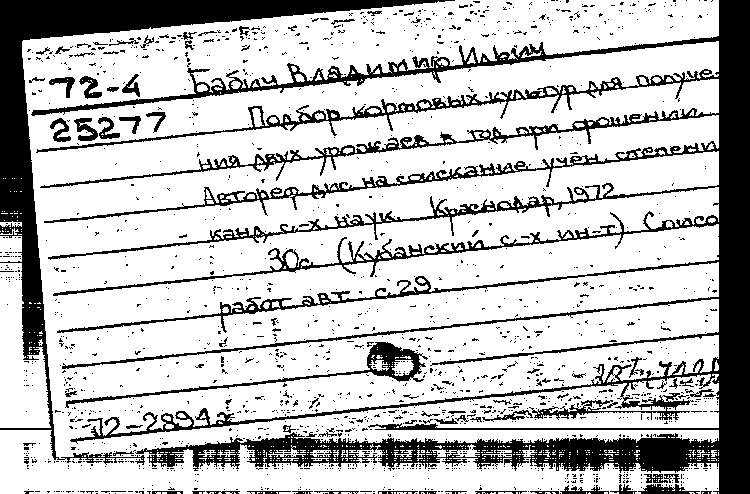 72-4 Бабич, Владимир Ильич
25277 Подбор кормовых культур для получе-
ния двух урожаев в год при орошении.
Автореф. дис. на соискание учён. степени
канд. с.-х. наук. Краснодар, 1972.
30с. (Кубанский с.-х. ин-т) Списо
работ авт. с.29.
72-2894